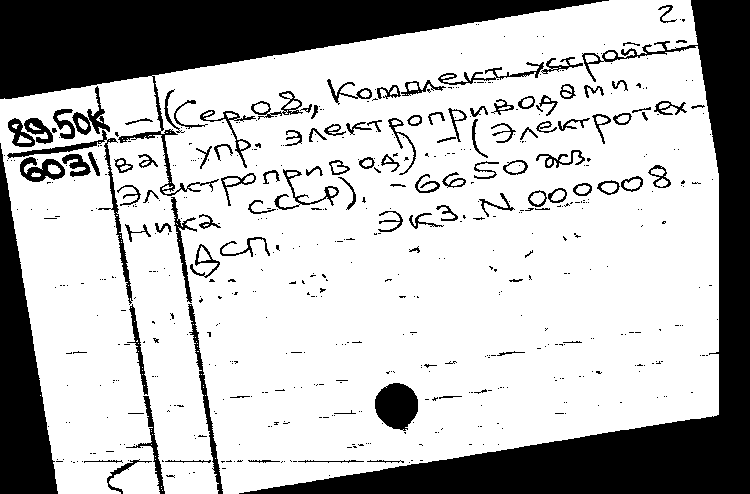 2.
89.50К
6031
— (Сер. 08, Комплект. устройст-
ва упр. электроприводами.
Электропривод). — (Электротех-
ника СССР). - 6650 экз.
ДСП. Экз. N 000008.